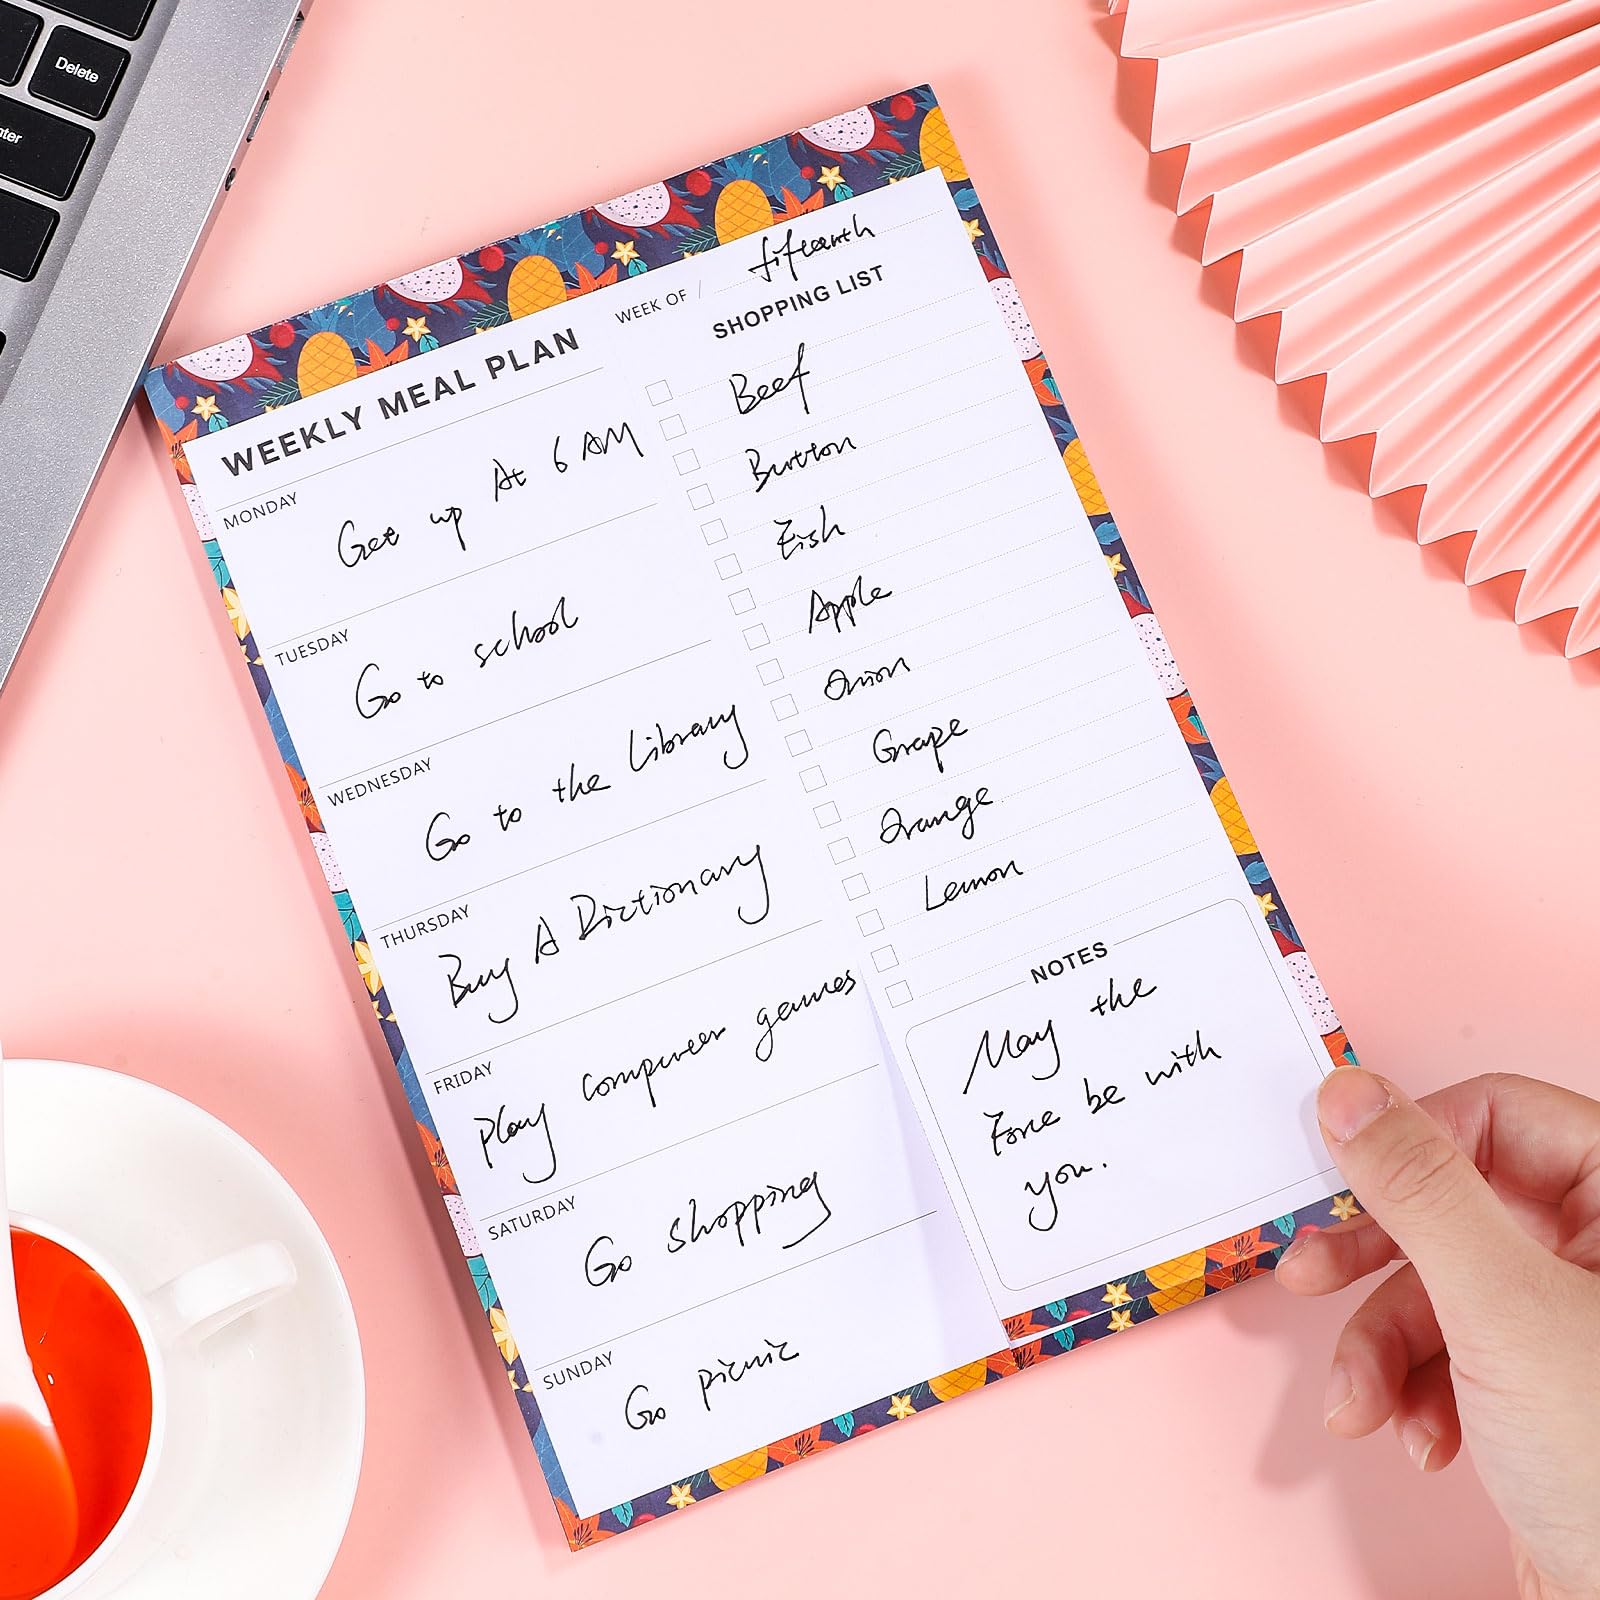 Delete
nter
WEEK OF / fifteenth
WEEKLY MEAL PLAN
MONDAY
Get up At 6 AM
TUESDAY
Go to school
WEDNESDAY
Go to the Library
THURSDAY
Buy A Dictionary
FRIDAY
Play computer games
SATURDAY
Go shopping
SUNDAY
Go picnic
SHOPPING LIST
Beef
Button
Fish
Apple
Onion
Grape
Orange
Lemon
NOTES
May the
Force be with
you.